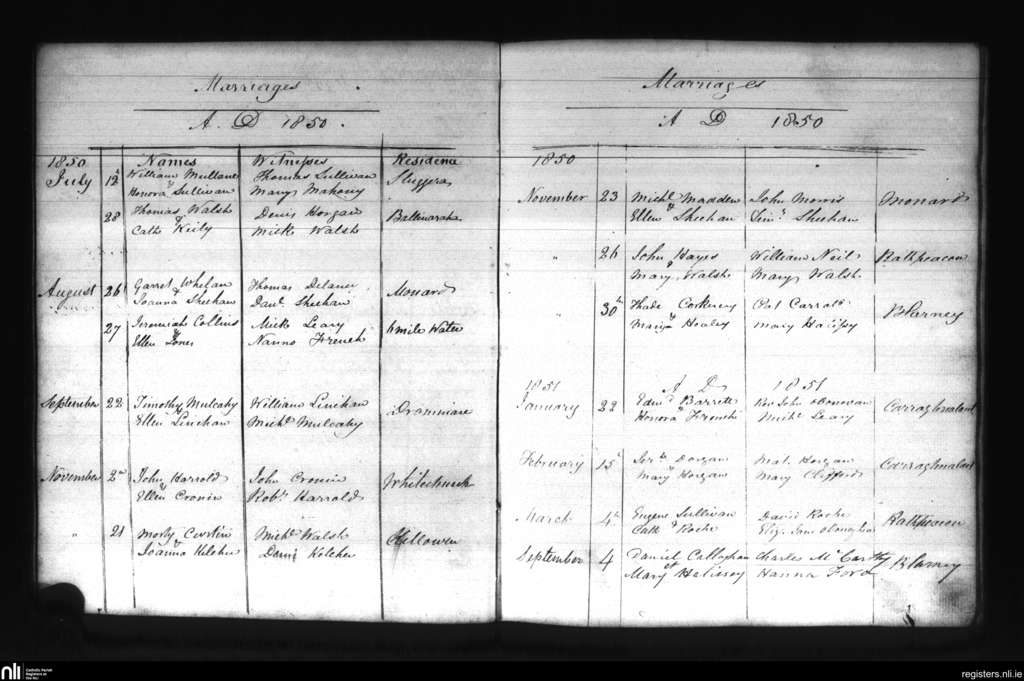 Marriages
A. D 1850.
1850 Names Witnesses Residence
July 12th William Mullane Thomas Sullivan Sluggera
& Honora Sullivan Mary Mahony
28 Thomas Walsh Denis Horgan
& Cath Keily Mick Walsh
August 26 Garret Whelan Thomas Delaney Monard
& Joanna Sheehan Danl Sheehan
27 Jeremiah Collins Mick Leary 6 mile Water
& Ellen Jones Nanno French
September 22 Timothy Mulcahy William Linehan
& Ellen Linehan Michl Mulcahy
November 2nd John Harrold John Cronin Whitechurch
& Ellen Cronin Robt Harrold
" 21 Michl Walsh
& Joanna Kelcher
Marriages
A D 1850
1850
November 23 Michl Madden John Morris Monard
& Ellen Sheehan Sheehan
" 26 John Hayes William Neil Rathpeacon
& Mary Walsh Mary Walsh
" 30th Thade Corkerey Pat Carroll Blarney
& Mary Healey Mary
1851 A D 1851
January 22 Edmd Barrett Revd John ODonovan
& Honora French Michl Leary
February 15th Jerh Dorgan Mat. Horgan
& Mary Horgan Mary Clifford
March 4th Eugene Sullivan David Roche Rathpeacon
& Cath Roche
September 4 Daniel Callaghan Charles McCarthy Blarney
et Mary Halissey Hanna Ford
nli
Catholic Parish
Registers at
the NLI
registers.nli.ie